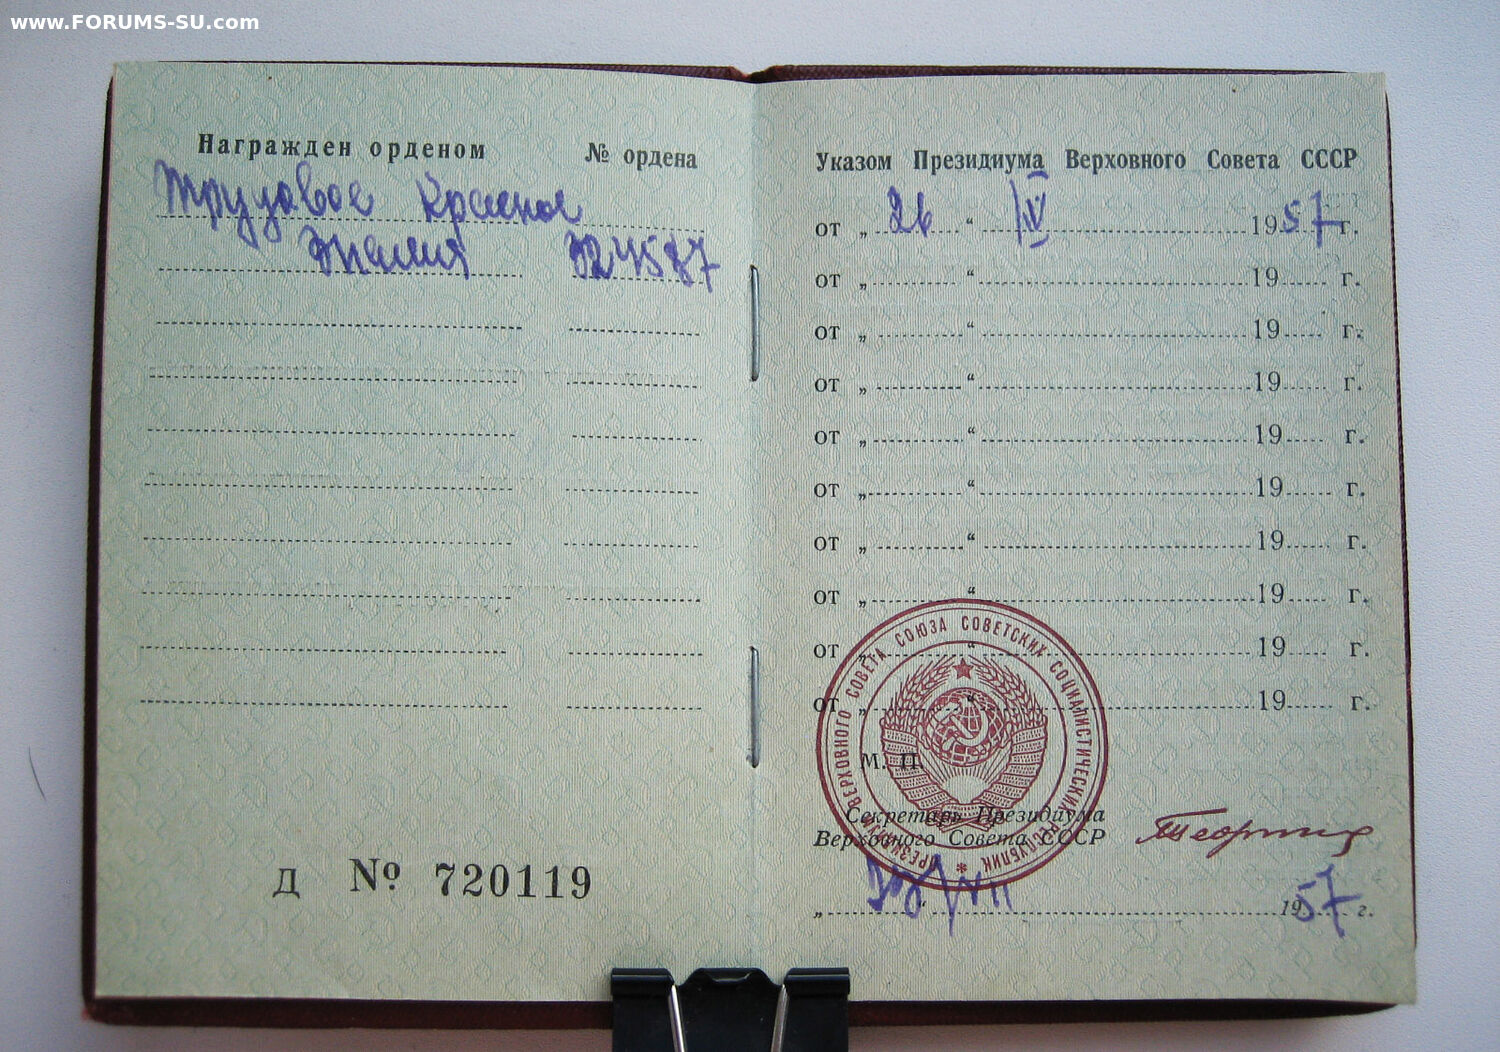 www.FORUMS-SU.com
Награжден орденом
№ ордена
Трудовое Красное
Знамя 324587
Д № 720119
Указом Президиума Верховного Совета СССР
от „ 26 “ IV 1957 г.
от „ “ 19 г.
от „ “ 19 г.
от „ “ 19 г.
от „ “ 19 г.
от „ “ 19 г.
от „ “ 19 г.
от „ “ 19 г.
от „ “ 19 г.
от „ “ 19 г.
ПРЕЗИДИУМ ВЕРХОВНОГО СОВЕТА СОЮЗА СОВЕТСКИХ СОЦИАЛИСТИЧЕСКИХ РЕСПУБЛИК
М. П.
Секретарь Президиума
Верховного Совета СССР
„ “ 1957 г.